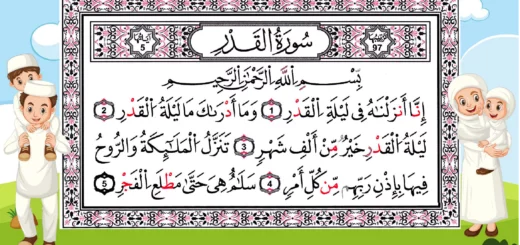 سُورَةُ الْقَدْرِ
آيَاتُهَا 5
97
بِسْمِ اللَّهِ الرَّحْمَٰنِ الرَّحِيمِ
إِنَّا أَنزَلْنَٰهُ فِى لَيْلَةِ الْقَدْرِ 1 وَمَا أَدْرَىٰكَ مَا لَيْلَةُ الْقَدْرِ 2
لَيْلَةُ الْقَدْرِ خَيْرٌ مِّنْ أَلْفِ شَهْرٍ 3 تَنَزَّلُ الْمَلَٰٓئِكَةُ وَالرُّوحُ
فِيهَا بِإِذْنِ رَبِّهِم مِّن كُلِّ أَمْرٍ 4 سَلَٰمٌ هِىَ حَتَّىٰ مَطْلَعِ الْفَجْرِ 5